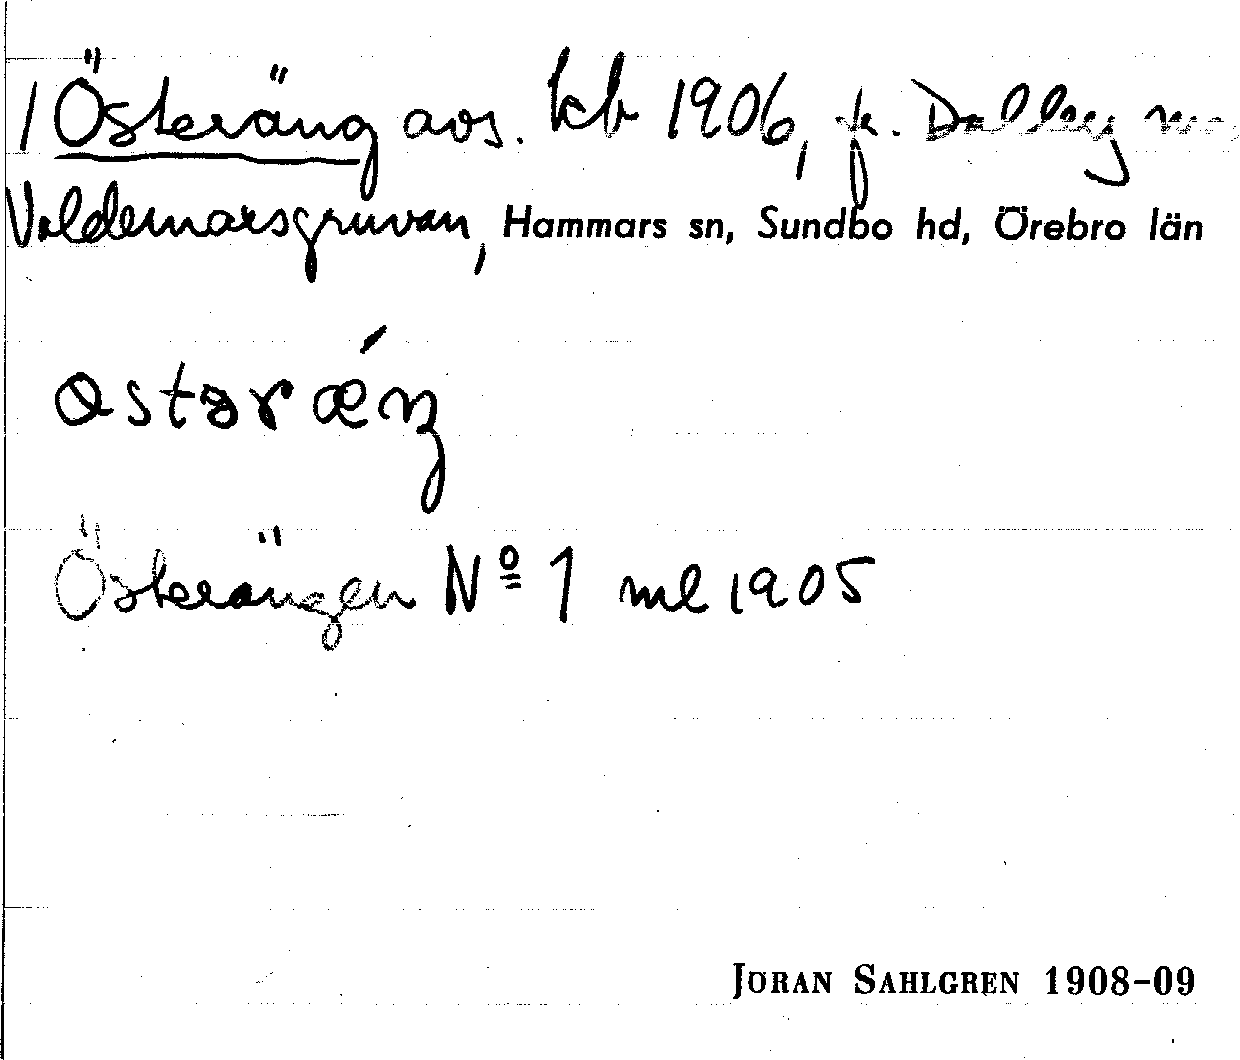 1 Österäng avs. kb 1906, fr. Dalby
Valdemarsgruvan, Hammars sn, Sundbo hd, Örebro län
Österängen Nº 1 ml 1905
JÖRAN SAHLGREN 1908-09